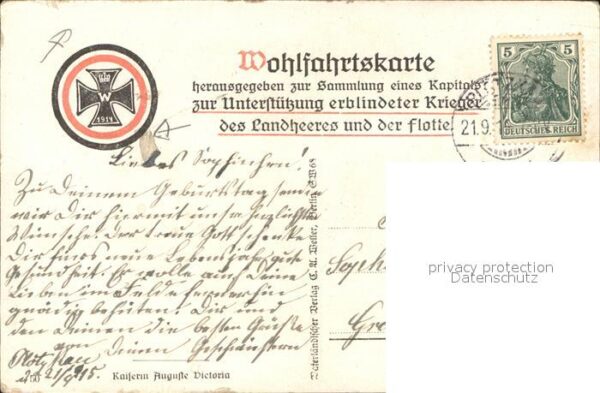 Wohlfahrtskarte
herausgegeben zur Sammlung eines Kapitals
zur Unterstützung erblindeter Krieger
des Landheeres und der Flotte.
W
1914
5 5
DEUTSCHES REICH
21.9.
Liebes Sophinchen!
Zu Deinem Geburtstag senden
wir Dir hiermit unsre herzlichsten
Wünsche. Der treue Gott schenke
Dir fürs neue Lebensjahr gute
Gesundheit. Er wolle auch Deine
Lieben im Felde fernerhin
gnädig behüten. Dir und
den Deinen die besten Grüße
von Deinen Geschwistern
21/9 15.
Kaiserin Auguste Victoria
Vaterländischer Verlag C. A. Weller, Berlin SW 68
Soph
Gre
privacy protection
Datenschutz